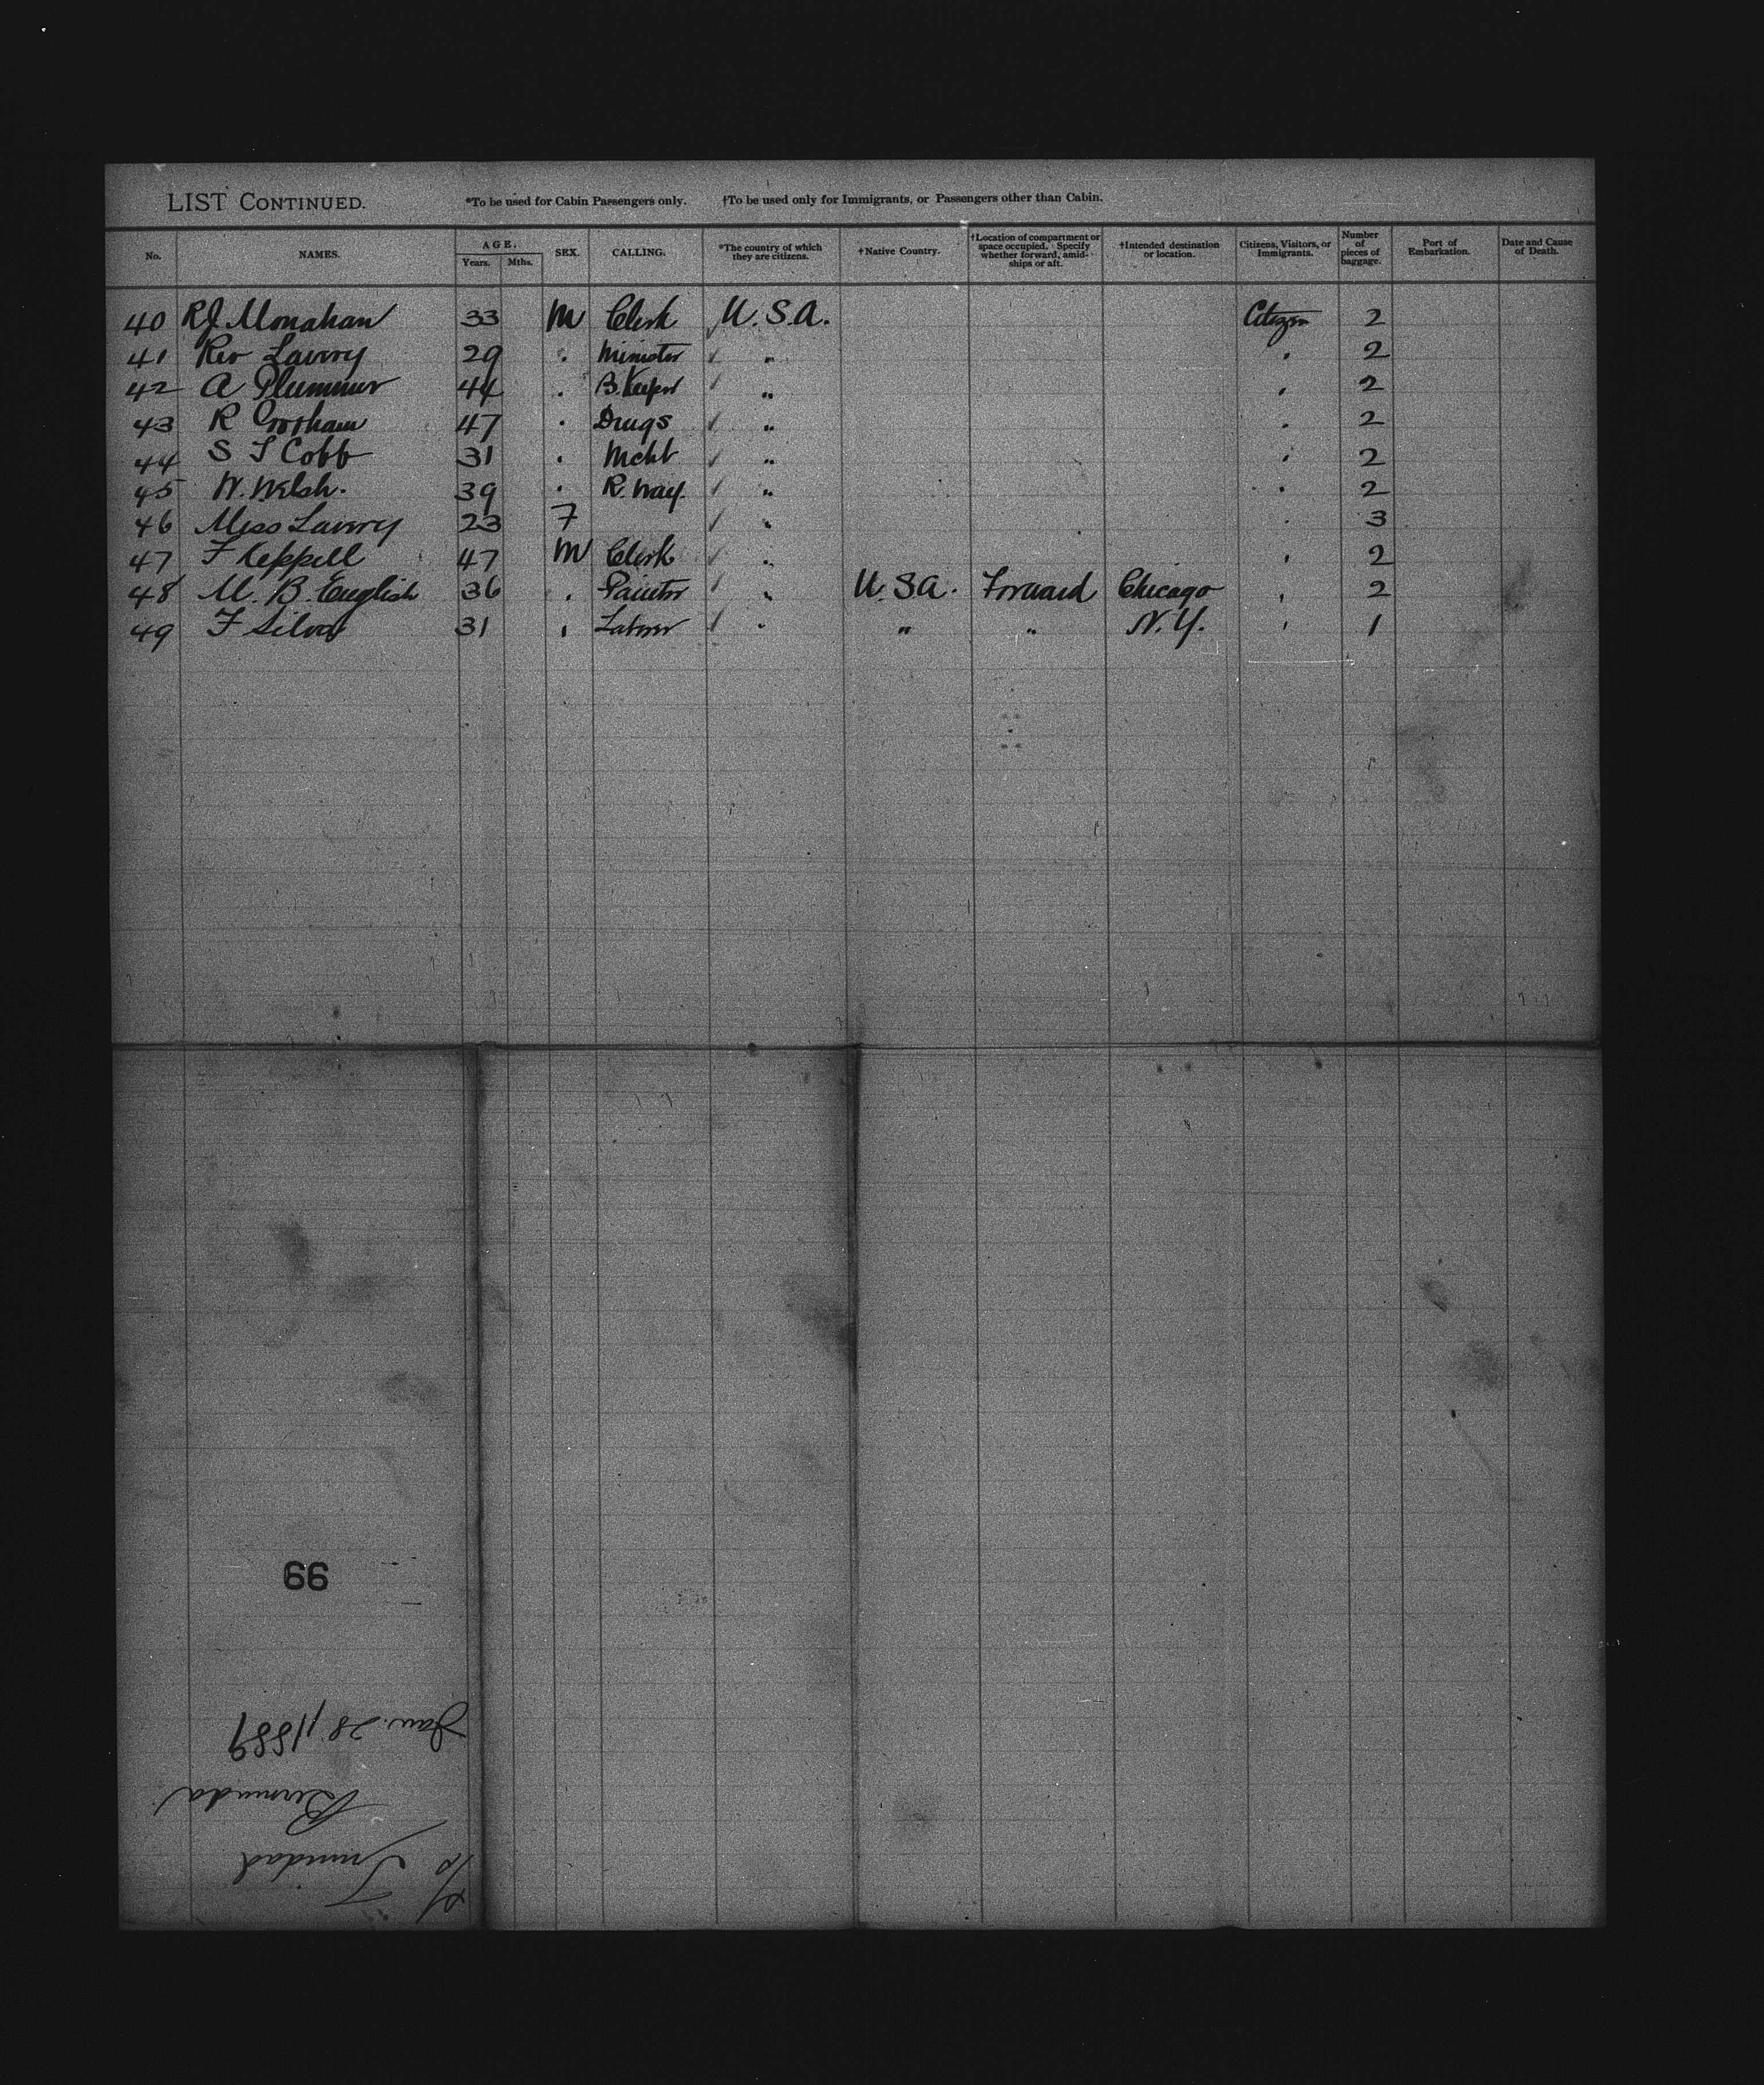 LIST CONTINUED. *To be used for Cabin Passengers only. †To be used only for Immigrants, or Passengers other than Cabin.
No. NAMES. AGE. Years. Mths. SEX. CALLING. *The country of which they are citizens. †Native Country. †Location of compartment or space occupied. Specify whether forward, amidships or aft. †Intended destination or location. Citizens, Visitors, or Immigrants. Number of pieces of baggage. Port of Embarkation. Date and Cause of Death.
40 RJ Monahan 33 M Clerk U.S.A. Citizen 2
41 Rev Lavery 29 . Minister " . 2
42 A Plummer 44 . B. Keeper " . 2
43 R 47 . Drugs " . 2
44 S Cobb 31 . Mcht " . 2
45 W. Welsh. 39 . R. Way. " . 2
46 Miss Lavery 23 F " . 3
47 F Keppell 47 M Clerk " . 2
48 M. B. English 36 . Painter " U.S.A. Forward Chicago . 2
49 F Silva 31 . Laborer " " " N.Y. . 1
66
Jan. 28/1889
Bermuda
S/S Trinidad